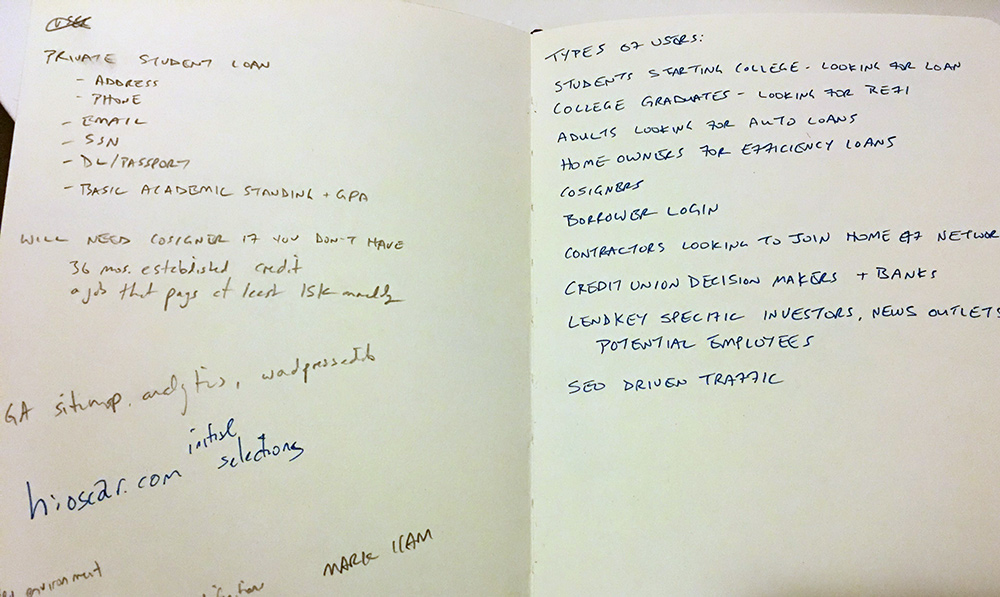 USER
PRIVATE STUDENT LOAN
- ADDRESS
- PHONE
- EMAIL
- SSN
- DL/PASSPORT
- BASIC ACADEMIC STANDING + GPA
WILL NEED COSIGNER IF YOU DON'T HAVE
36 mos. established credit
a job that pays at least 15k
GA sitemap, analytics,
initial
hioscar.com selections
MARK 11AM
environment
TYPES OF USERS:
STUDENTS STARTING COLLEGE - LOOKING FOR LOAN
COLLEGE GRADUATES - LOOKING FOR REFI
ADULTS LOOKING FOR AUTO LOANS
HOME OWNERS FOR EFFICIENCY LOANS
COSIGNERS
BORROWER LOGIN
CONTRACTORS LOOKING TO JOIN HOME EF NETWOR
CREDIT UNION DECISION MAKERS + BANKS
LENDKEY SPECIFIC INVESTORS, NEWS OUTLETS
POTENTIAL EMPLOYEES
SEO DRIVEN TRAFFIC